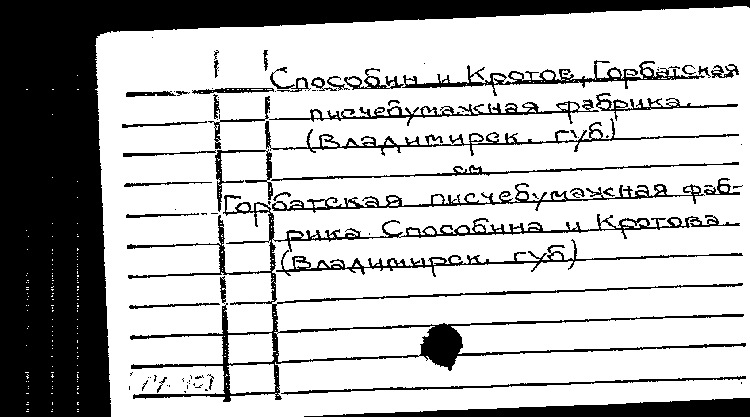 Способин и Кротов, Горбатская
писчебумажная фабрика.
(Владимирск. губ.)
см.
Горбатская писчебумажная фаб-
рика Способина и Кротова.
(Владимирск. губ)